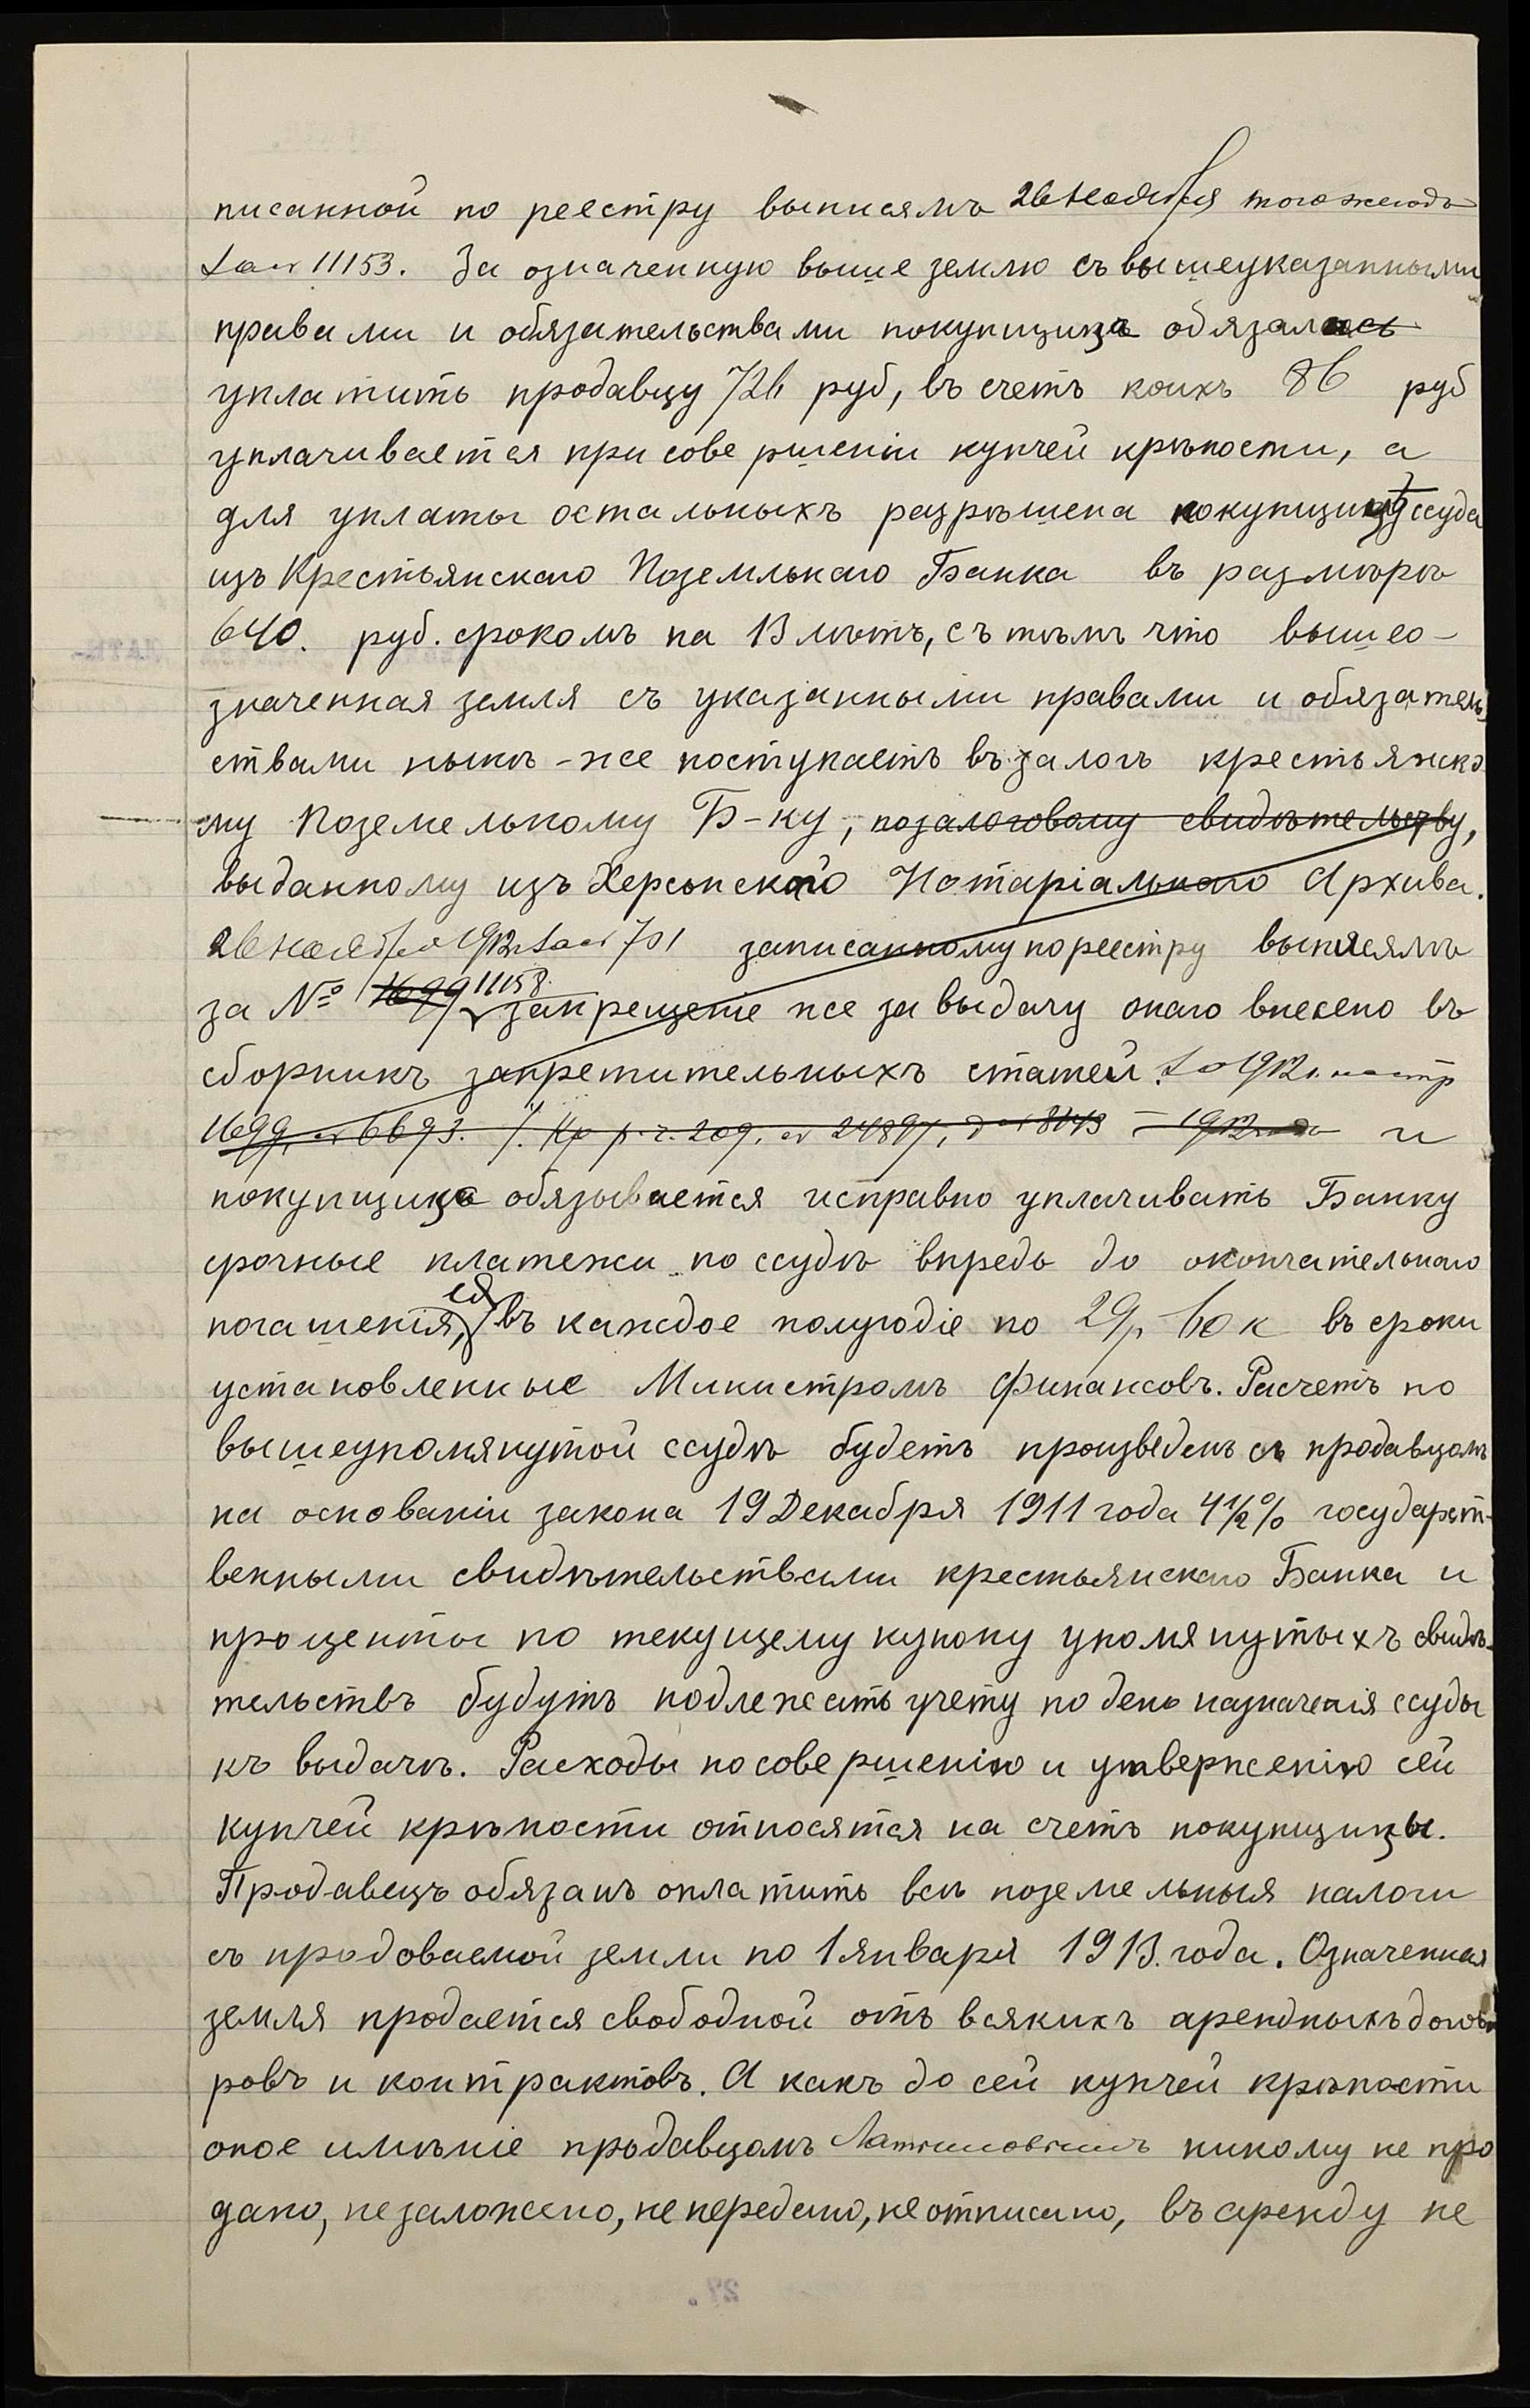 писанной по реестру выписямъ 26 ноября того же года
за № 11153. За означенную выше землю съ вышеуказанными
правами и обязательствами покупщица обязалась
уплатить продавцу 726 руб, въ счетъ коихъ 86 руб
уплачивается при совершеніи купчей крѣпости, а
для уплаты остальныхъ разрѣшена покупщицѣ ссуда
изъ Крестьянскаго Поземльнаго Банка въ размѣрѣ
640. руб. срокомъ на 13 лѣтъ, съ тѣмъ что вышео-
значенная земля съ указанными правами и обязатель
ствами нынѣ-же поступаетъ въ залогъ крестьянско
му Поземельному Б-ку, по залоговому свидѣтельству,
выданному изъ Херсонскаго Нотаріальнаго Архива.
26 ноября 1912 г. за № 701 записанному по реестру выписямъ
за № 1699 11158. запрещеніе же за выдачу онаго внесено въ
сборникъ запретительныхъ статей. 1912 г.
1699, 6693. 209, 24897, 1912 и
покупщица обязывается исправно уплачивать Банку
срочные платежи по ссудѣ впредь до окончательнаго
погашенія, ея въ каждое полугодіе по 29 р. 60 к въ сроки
установленные Министромъ Финансовъ. Расчетъ по
вышеупомянутой ссудѣ будетъ произведенъ съ продавцомъ
на основаніи закона 19 Декабря 1911 года 4½% государст-
венными свидѣтельствами крестьянскаго Банка и
проценты по текущему купону упомянутыхъ свидѣ-
тельствъ будутъ подлежать учету по день назначенія ссуды
къ выдачѣ. Расходы по совершенію и утвержсенію сей
купчей крѣпости относятся на счетъ покупщицы.
Продавецъ обязанъ оплатить всѣ поземельныя налоги
съ продоваемой земли по 1 января 1913. года. Означенная
земля продается свободной отъ всякихъ арендныхъ догово
ровъ и контрактовъ. А какъ до сей купчей крѣпости
оное имѣніе продавцомъ никому не про
дано, не заложено, не передано, не отписано, въ аренду не